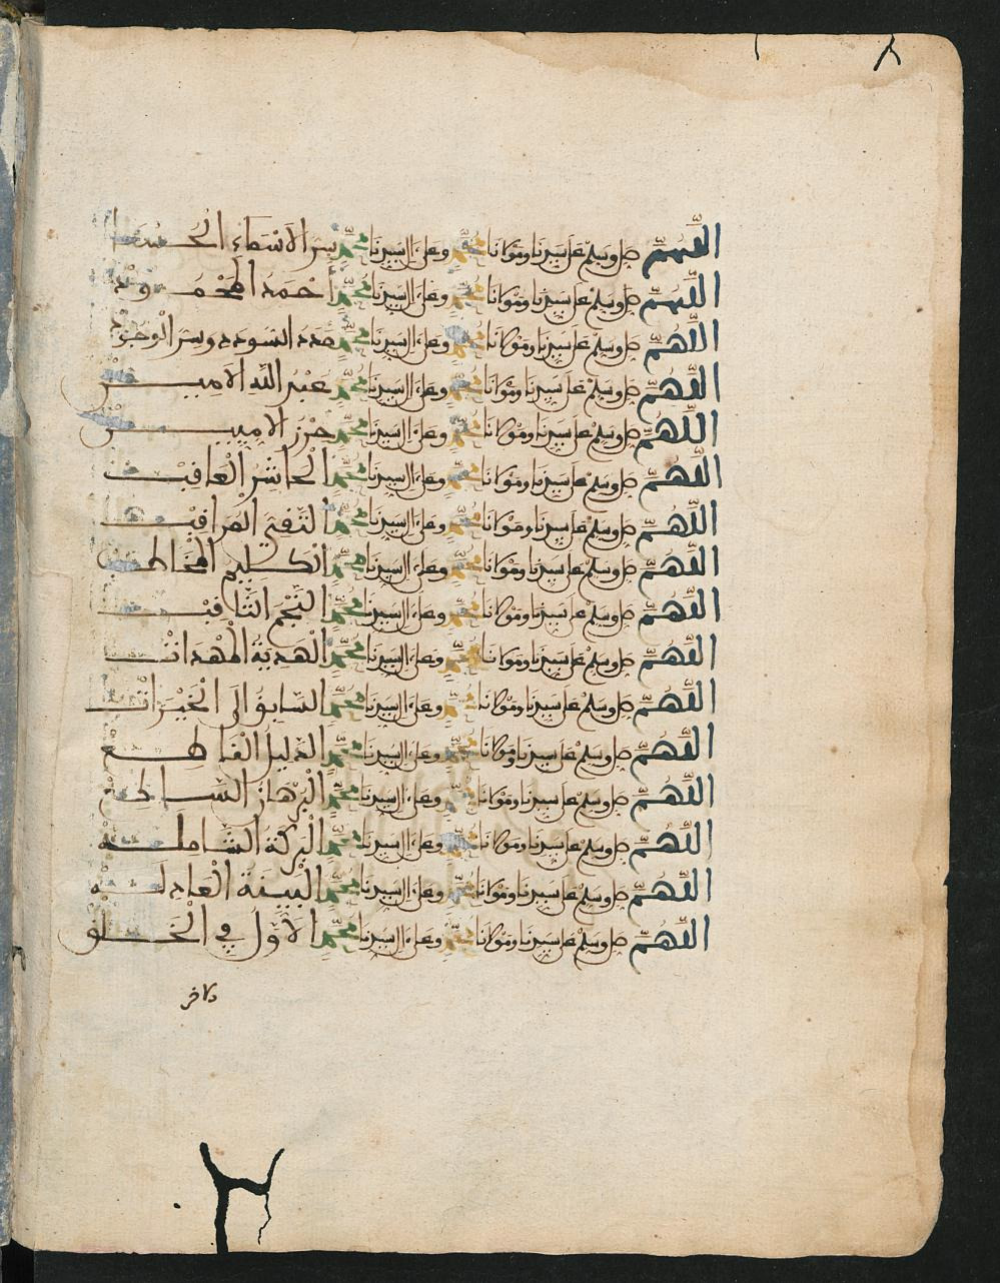 اللَّهُمَّ صل وسلم على سيدنا ومولانا محمد وعلى ءال سيدنا محمد سر الاسماء الحسنى
اللَّهُمَّ صل وسلم على سيدنا ومولانا محمد وعلى ءال سيدنا محمد أحمد المحمود
اللَّهُمَّ صل وسلم على سيدنا ومولانا محمد وعلى ءال سيدنا محمد مدد السودد وسر الوجود
اللَّهُمَّ صل وسلم على سيدنا ومولانا محمد وعلى ءال سيدنا محمد عبد الله الامين
اللَّهُمَّ صل وسلم على سيدنا ومولانا محمد وعلى ءال سيدنا محمد حرز الاميين
اللَّهُمَّ صل وسلم على سيدنا ومولانا محمد وعلى ءال سيدنا محمد الحاشر العاقب
اللَّهُمَّ صل وسلم على سيدنا ومولانا محمد وعلى ءال سيدنا محمد التقي المراقب
اللَّهُمَّ صل وسلم على سيدنا ومولانا محمد وعلى ءال سيدنا محمد الكليم المخاطب
اللَّهُمَّ صل وسلم على سيدنا ومولانا محمد وعلى ءال سيدنا محمد النجم الثاقب
اللَّهُمَّ صل وسلم على سيدنا ومولانا محمد وعلى ءال سيدنا محمد الهدية المهدات
اللَّهُمَّ صل وسلم على سيدنا ومولانا محمد وعلى ءال سيدنا محمد السابق الى الخيرات
اللَّهُمَّ صل وسلم على سيدنا ومولانا محمد وعلى ءال سيدنا محمد الدليل القاطع
اللَّهُمَّ صل وسلم على سيدنا ومولانا محمد وعلى ءال سيدنا محمد البرهان الساطع
اللَّهُمَّ صل وسلم على سيدنا ومولانا محمد وعلى ءال سيدنا محمد البركة الشاملة
اللَّهُمَّ صل وسلم على سيدنا ومولانا محمد وعلى ءال سيدنا محمد البينة العادلة
اللَّهُمَّ صل وسلم على سيدنا ومولانا محمد وعلى ءال سيدنا محمد الاول في الخلق